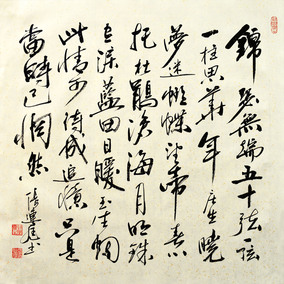 錦瑟無端五十弦一弦
一柱思華年莊生曉
夢迷蝴蝶望帝春心
托杜鵑滄海月明珠
有淚藍田日暖玉生烟
此情可待成追憶只是
當時已惘然